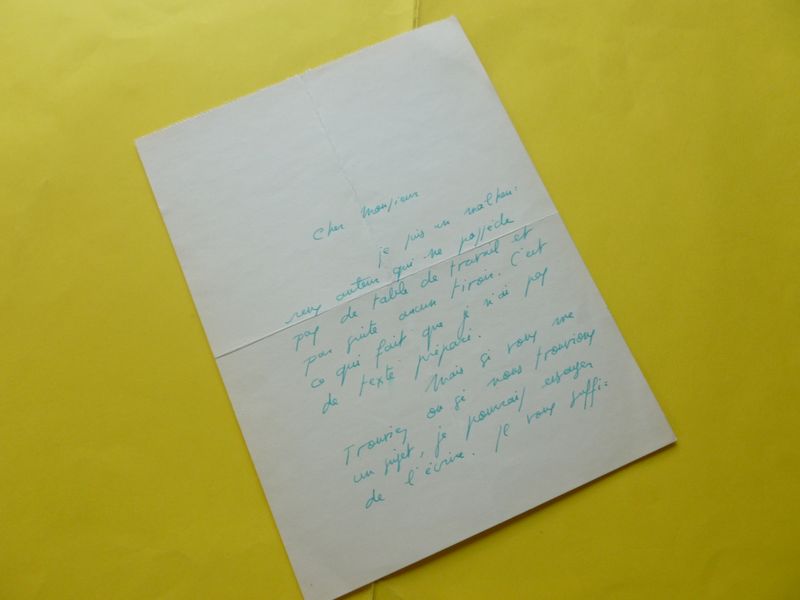 Cher Monsieur
je suis un malheu-
reux auteur qui ne possède
pas de table de travail et
par suite aucun tiroir. C'est
ce qui fait que je n'ai pas
de texte préparé.
Mais si vous me
trouviez ou si nous trouvions
un sujet, je pourrais essayer
de l'écrire. Il vous suffi-